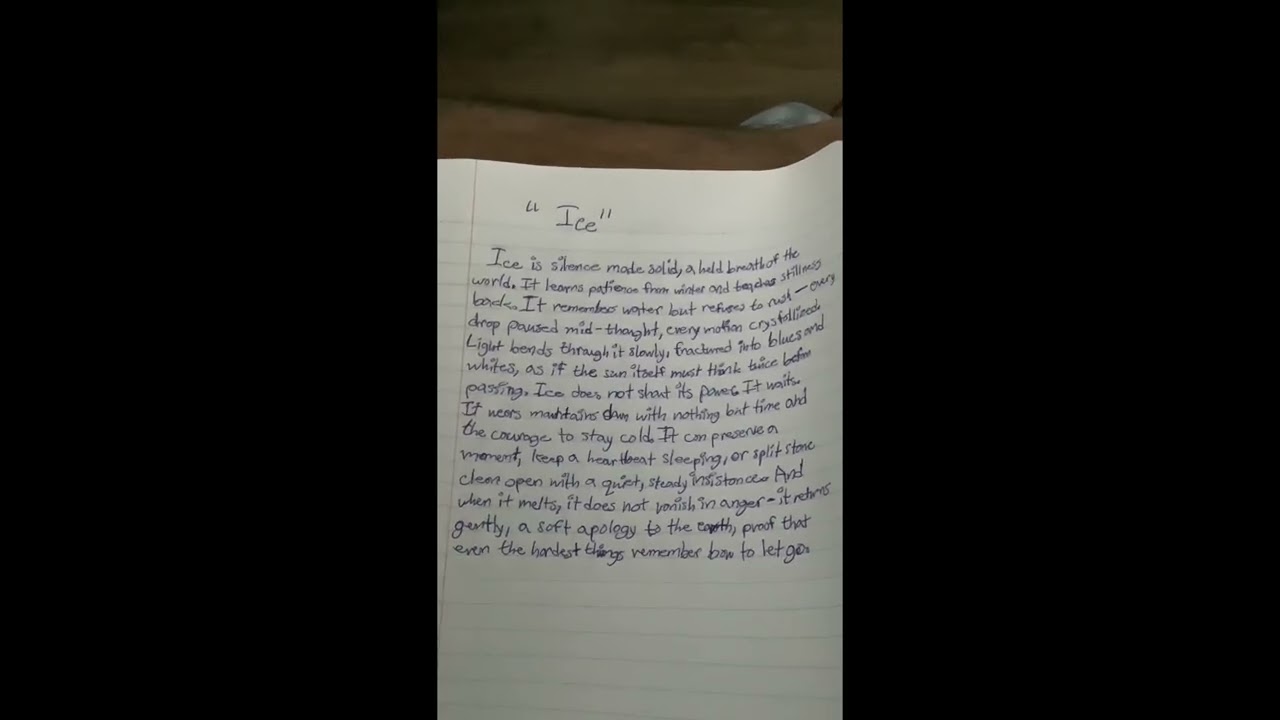 "Ice"
Ice is silence made solid, a held breath of the
world. It learns patience from winter and teaches stillness
back. It remembers water but refuses to rush — every
drop paused mid-thought, every motion crystallized.
Light bends through it slowly, fractured into blues and
whites, as if the sun itself must think twice before
passing. Ice does not shout its power. It waits.
It wears mountains down with nothing but time and
the courage to stay cold. It can preserve a
moment, keep a heartbeat sleeping, or split stone
clean open with a quiet, steady insistence. And
when it melts, it does not vanish in anger - it returns
gently, a soft apology to the earth, proof that
even the hardest things remember how to let go.